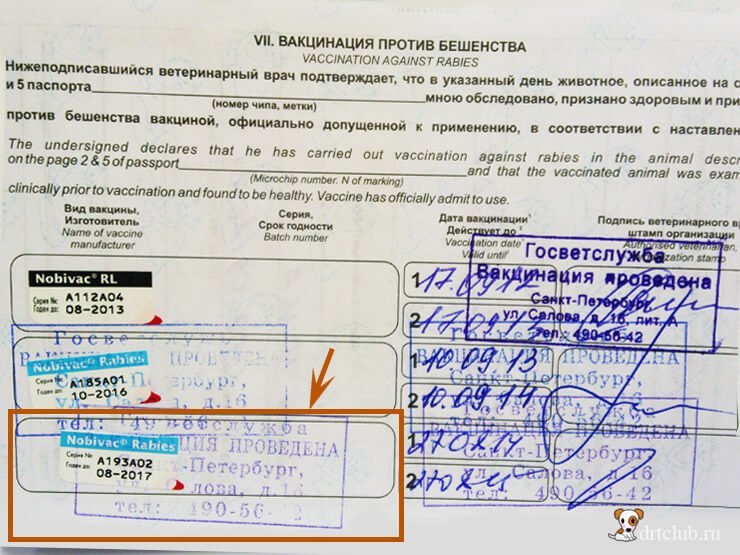 VII. ВАКЦИНАЦИЯ ПРОТИВ БЕШЕНСТВА
VACCINATION AGAINST RABIES
Нижеподписавшийся ветеринарный врач подтверждает, что в указанный день животное, описанное на с
и 5 паспорта мною обследовано, признано здоровым и при
(номер чипа, метки)
против бешенства вакциной, официально допущенной к применению, в соответствии с наставлен
The undersigned declares that he has carried out vaccination against rabies in the animal descr
on the page 2 & 5 of passport and that the vaccinated animal was exam
(Microchip number. N of marking)
clinically prior to vaccination and found to be healthy. Vaccine has officially admit to use.
Вид вакцины,
Изготовитель
Name of vaccine
manufacturer
Серия,
Срок годности
Batch number
Дата вакцинации
Действует до
Vaccination date
Valid until
Подпись ветеринарного вр
штамп организации
Authorised veterinarian,
stamp
Госветслужба
Вакцинация проведена
Санкт-Петербург
ул. Салова, д. 16 лит. А
тел.: 490-56-42
Nobivac® RL
Серия № A112A04
Годен до: 08-2013
1 17.09.12
2 17.09.13
Госветслужба
ВАКЦИНАЦИЯ ПРОВЕДЕНА
Санкт-Петербург,
ул. Салова, д.16
тел: 49
Nobivac® Rabies
Серия № A185A01
Годен до: 10-2016
1 10.09.13
2 10.09.14
ВАКЦИНАЦИЯ ПРОВЕДЕНА
Санкт-Петербург,
Салова, д.16
Госветслужба
Nobivac® Rabies
Серия № A193A02
Годен до: 08-2017
Госветслужба
ЦИЯ ПРОВЕДЕНА
кт-Петербург,
Салова, д.16
тел: 490-56-42
1
2
Санкт-Петербург,
ул. Салова, д. 16
тел: 490-56-42
drtclub.ru